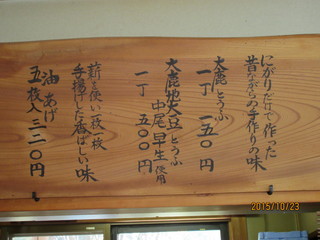 にがりだけで作った
昔ながらの手作りの味
大鹿とうふ
一丁 一五〇円
大鹿地大豆とうふ
中尾早生使用
一丁 五〇〇円
薪を使い一枚一枚
手揚げした香ばしい味
油あげ
五枚入三二〇円
2015/10/23